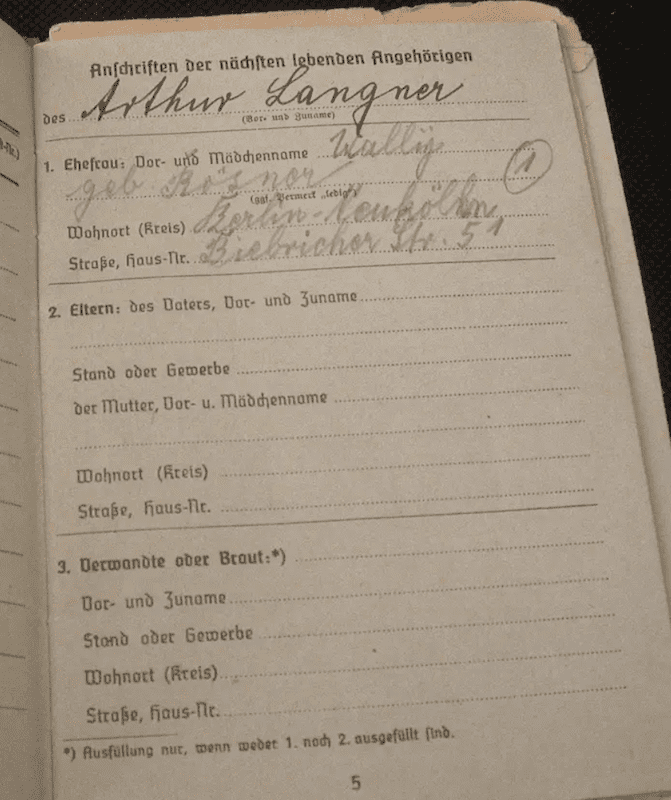 Anschriften der nächsten lebenden Angehörigen
des Arthur Langner
(Vor- und Zuname)
1. Ehefrau: Vor- und Mädchenname Wally
geb Rösner
(ggf. Vermerk „ledig“)
1
Wohnort (Kreis) Berlin-Neukölln
Straße, Haus-Nr. Biebricher Str. 51
2. Eltern: des Vaters, Vor- und Zuname
Stand oder Gewerbe
der Mutter, Vor- u. Mädchenname
Wohnort (Kreis)
Straße, Haus-Nr.
3. Verwandte oder Braut:*)
Vor- und Zuname
Stand oder Gewerbe
Wohnort (Kreis)
Straße, Haus-Nr.
*) Ausfüllung nur, wenn weder 1. noch 2. ausgefüllt sind.
5